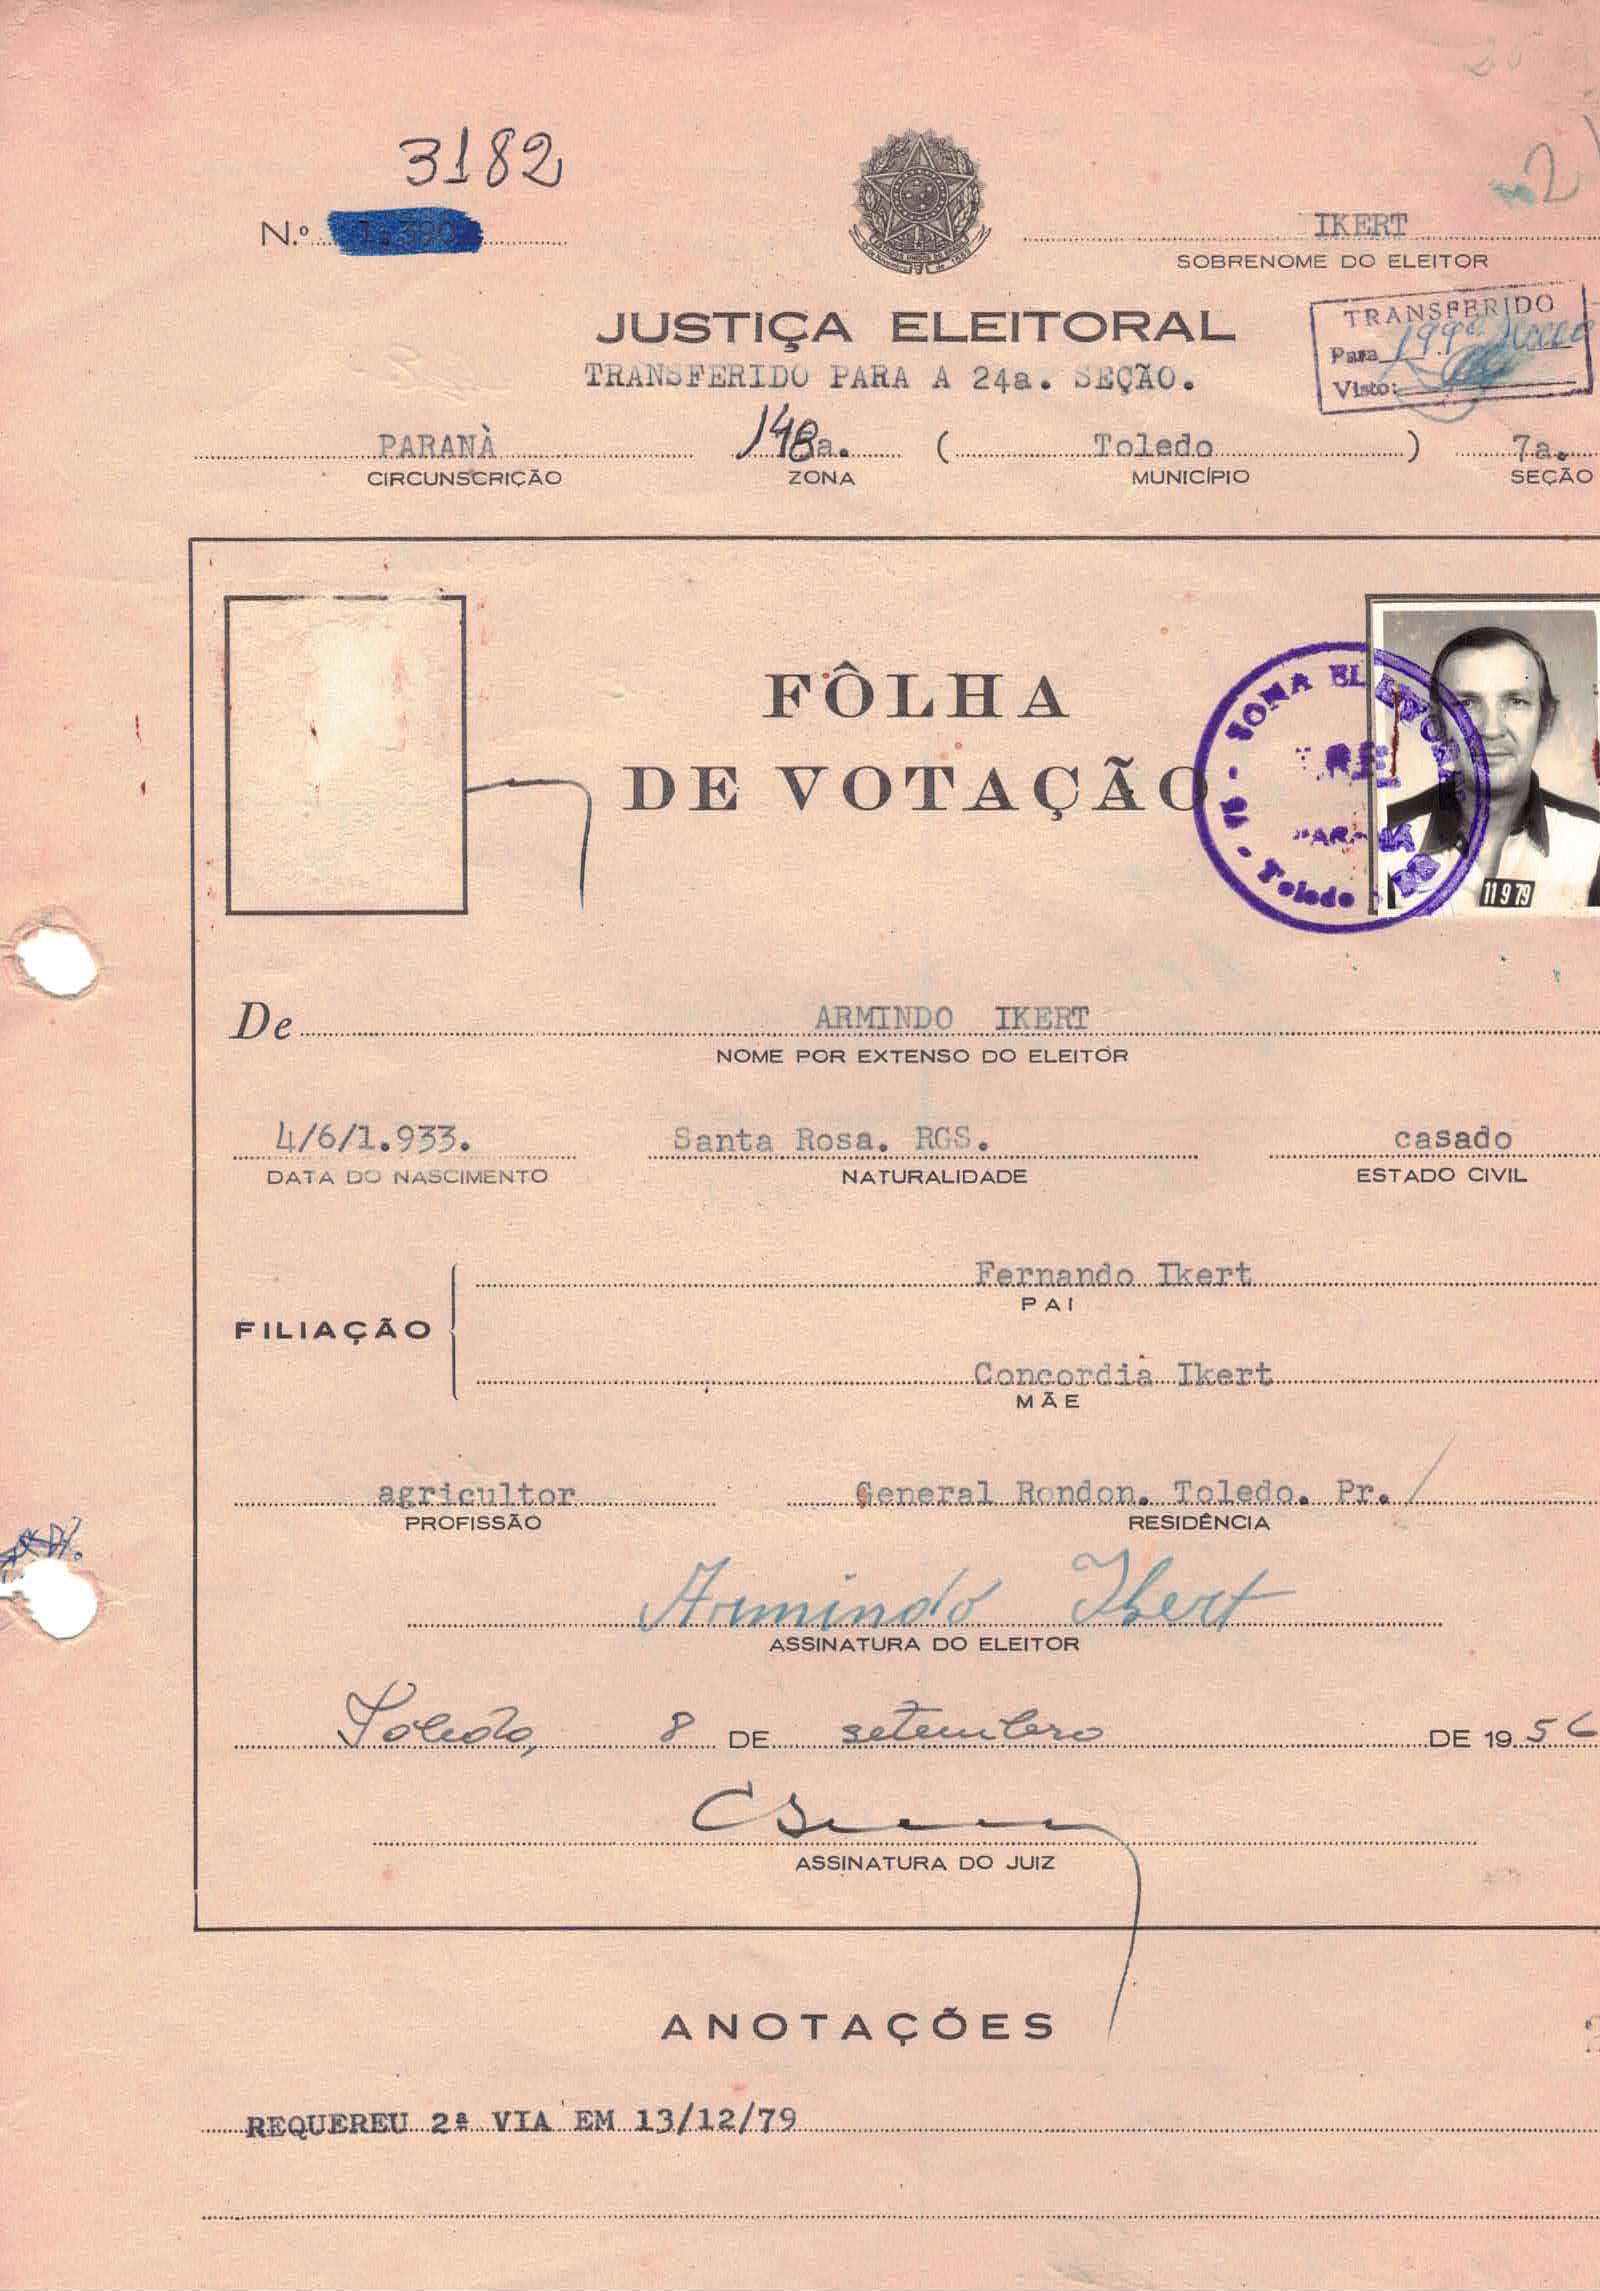 3182
N.º 1.390
IKERT
SOBRENOME DO ELEITOR
JUSTIÇA ELEITORAL
TRANSFERIDO PARA A 24a. SEÇÃO.
TRANSFERIDO
Para 199ª
Visto:
PARANÀ 148a. ( Toledo ) 7a.
CIRCUNSCRIÇÃO ZONA MUNICÍPIO SEÇÃO
FÔLHA
DE VOTAÇÃO
ZONA ELEITORAL
TRE
PARANÁ
Toledo
11 9 79
De ARMINDO IKERT
NOME POR EXTENSO DO ELEITOR
4/6/1.933. Santa Rosa. RGS. casado
DATA DO NASCIMENTO NATURALIDADE ESTADO CIVIL
Fernando Ikert
PAI
FILIAÇÃO
Concordia Ikert
MÃE
agricultor General Rondon. Toledo. Pr.
PROFISSÃO RESIDÊNCIA
Armindo Ikert
ASSINATURA DO ELEITOR
Toledo, 8 DE setembro DE 1956
ASSINATURA DO JUIZ
ANOTAÇÕES
REQUEREU 2ª VIA EM 13/12/79